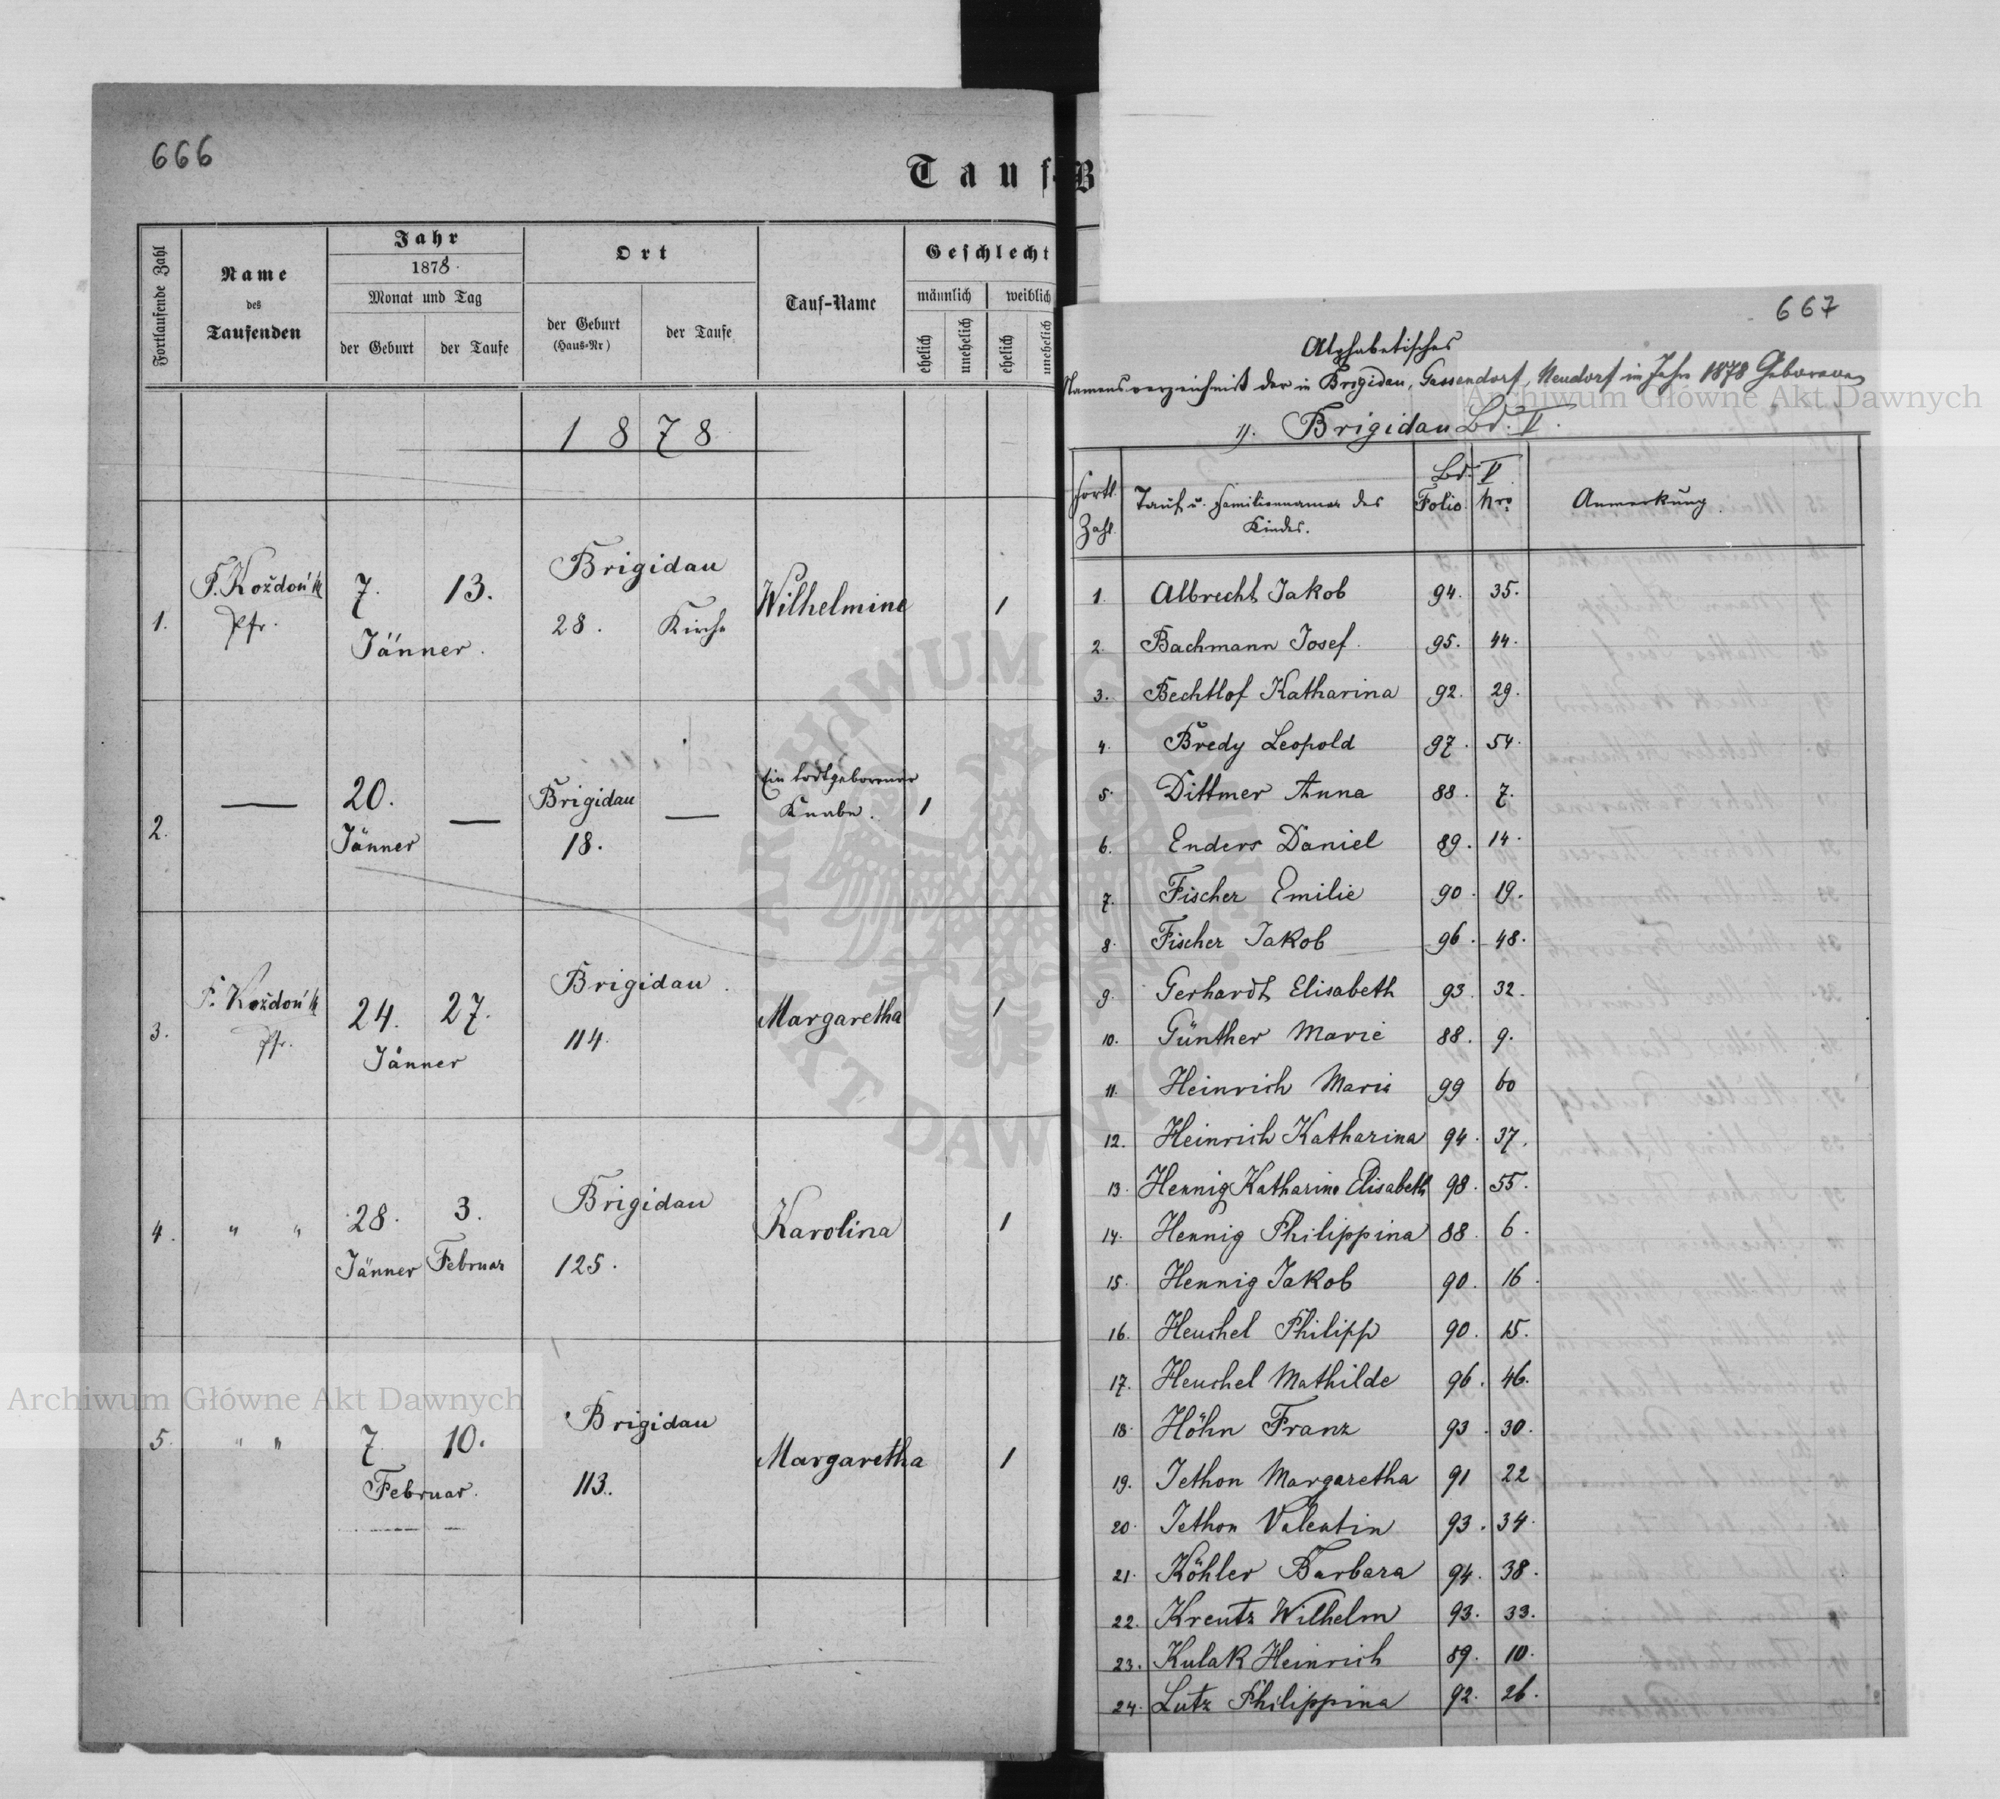 666
Tauf-B
Fortlaufende Zahl
Name
des
Taufenden
Jahr
1878.
Monat und Tag
der Geburt
der Taufe
Ort
der Geburt
(Haus-Nr)
der Taufe
Tauf-Name
Geschlecht
männlich
weiblich
ehelich
unehelich
ehelich
unehelich
1878
1. Pfr. 7. 13. Jänner. Brigidau 28. Kirche Wilhelmine 1
2. — 20. Jänner — Brigidau 18. — Ein todtgeborener Knabe. 1
3. Pfr. 24. 27. Jänner Brigidau 114. Margaretha 1
4. " " 28. Jänner 3. Februar Brigidau 125. Karolina 1
5. " " 7. 10. Februar. Brigidau 113. Margaretha 1
667
Alphabetisches
Namensverzeichniß der in Brigidau, Gassendorf, Neudorf im Jahr 1878 Geborenen
1). Brigidau Bd. V.
Fortl. Zahl
Tauf u. Familiennamen des
Kindes.
Bd. V
Folio
Nro
Anmerkung.
1. Albrecht Jakob 94. 35.
2. Bachmann Josef. 95. 44.
3. Bechtlof Katharina 92. 29.
4. Bredy Leopold 97. 54.
5. Dittmer Anna 88. 7.
6. Enders Daniel 89. 14.
7. Fischer Emilie 90. 19.
8. Fischer Jakob 96. 48.
9. Gerhardt Elisabeth 93. 32.
10. Günther Marie 88. 9.
11. Heinrich Marie 99 60
12. Heinrich Katharina 94. 37.
13. Hennig Katharina Elisabeth 98. 55.
14. Hennig Philippina 88. 6.
15. Hennig Jakob 90. 16.
16. Heuchel Philipp 90. 15.
17. Heuchel Mathilde 96. 46.
18. Höhn Franz 93. 30.
19. Jethon Margaretha 91 22
20. Jethon Valentin 93. 34.
21. Köhler Barbara 94. 38.
22. Kreutz Wilhelm 93. 33.
23. Kulak Heinrich 89. 10.
24. Lutz Philippina 92. 26.
Archiwum Główne Akt Dawnych
Archiwum Główne Akt Dawnych
ARCHIWUM GŁÓWNE AKT DAWNYCH